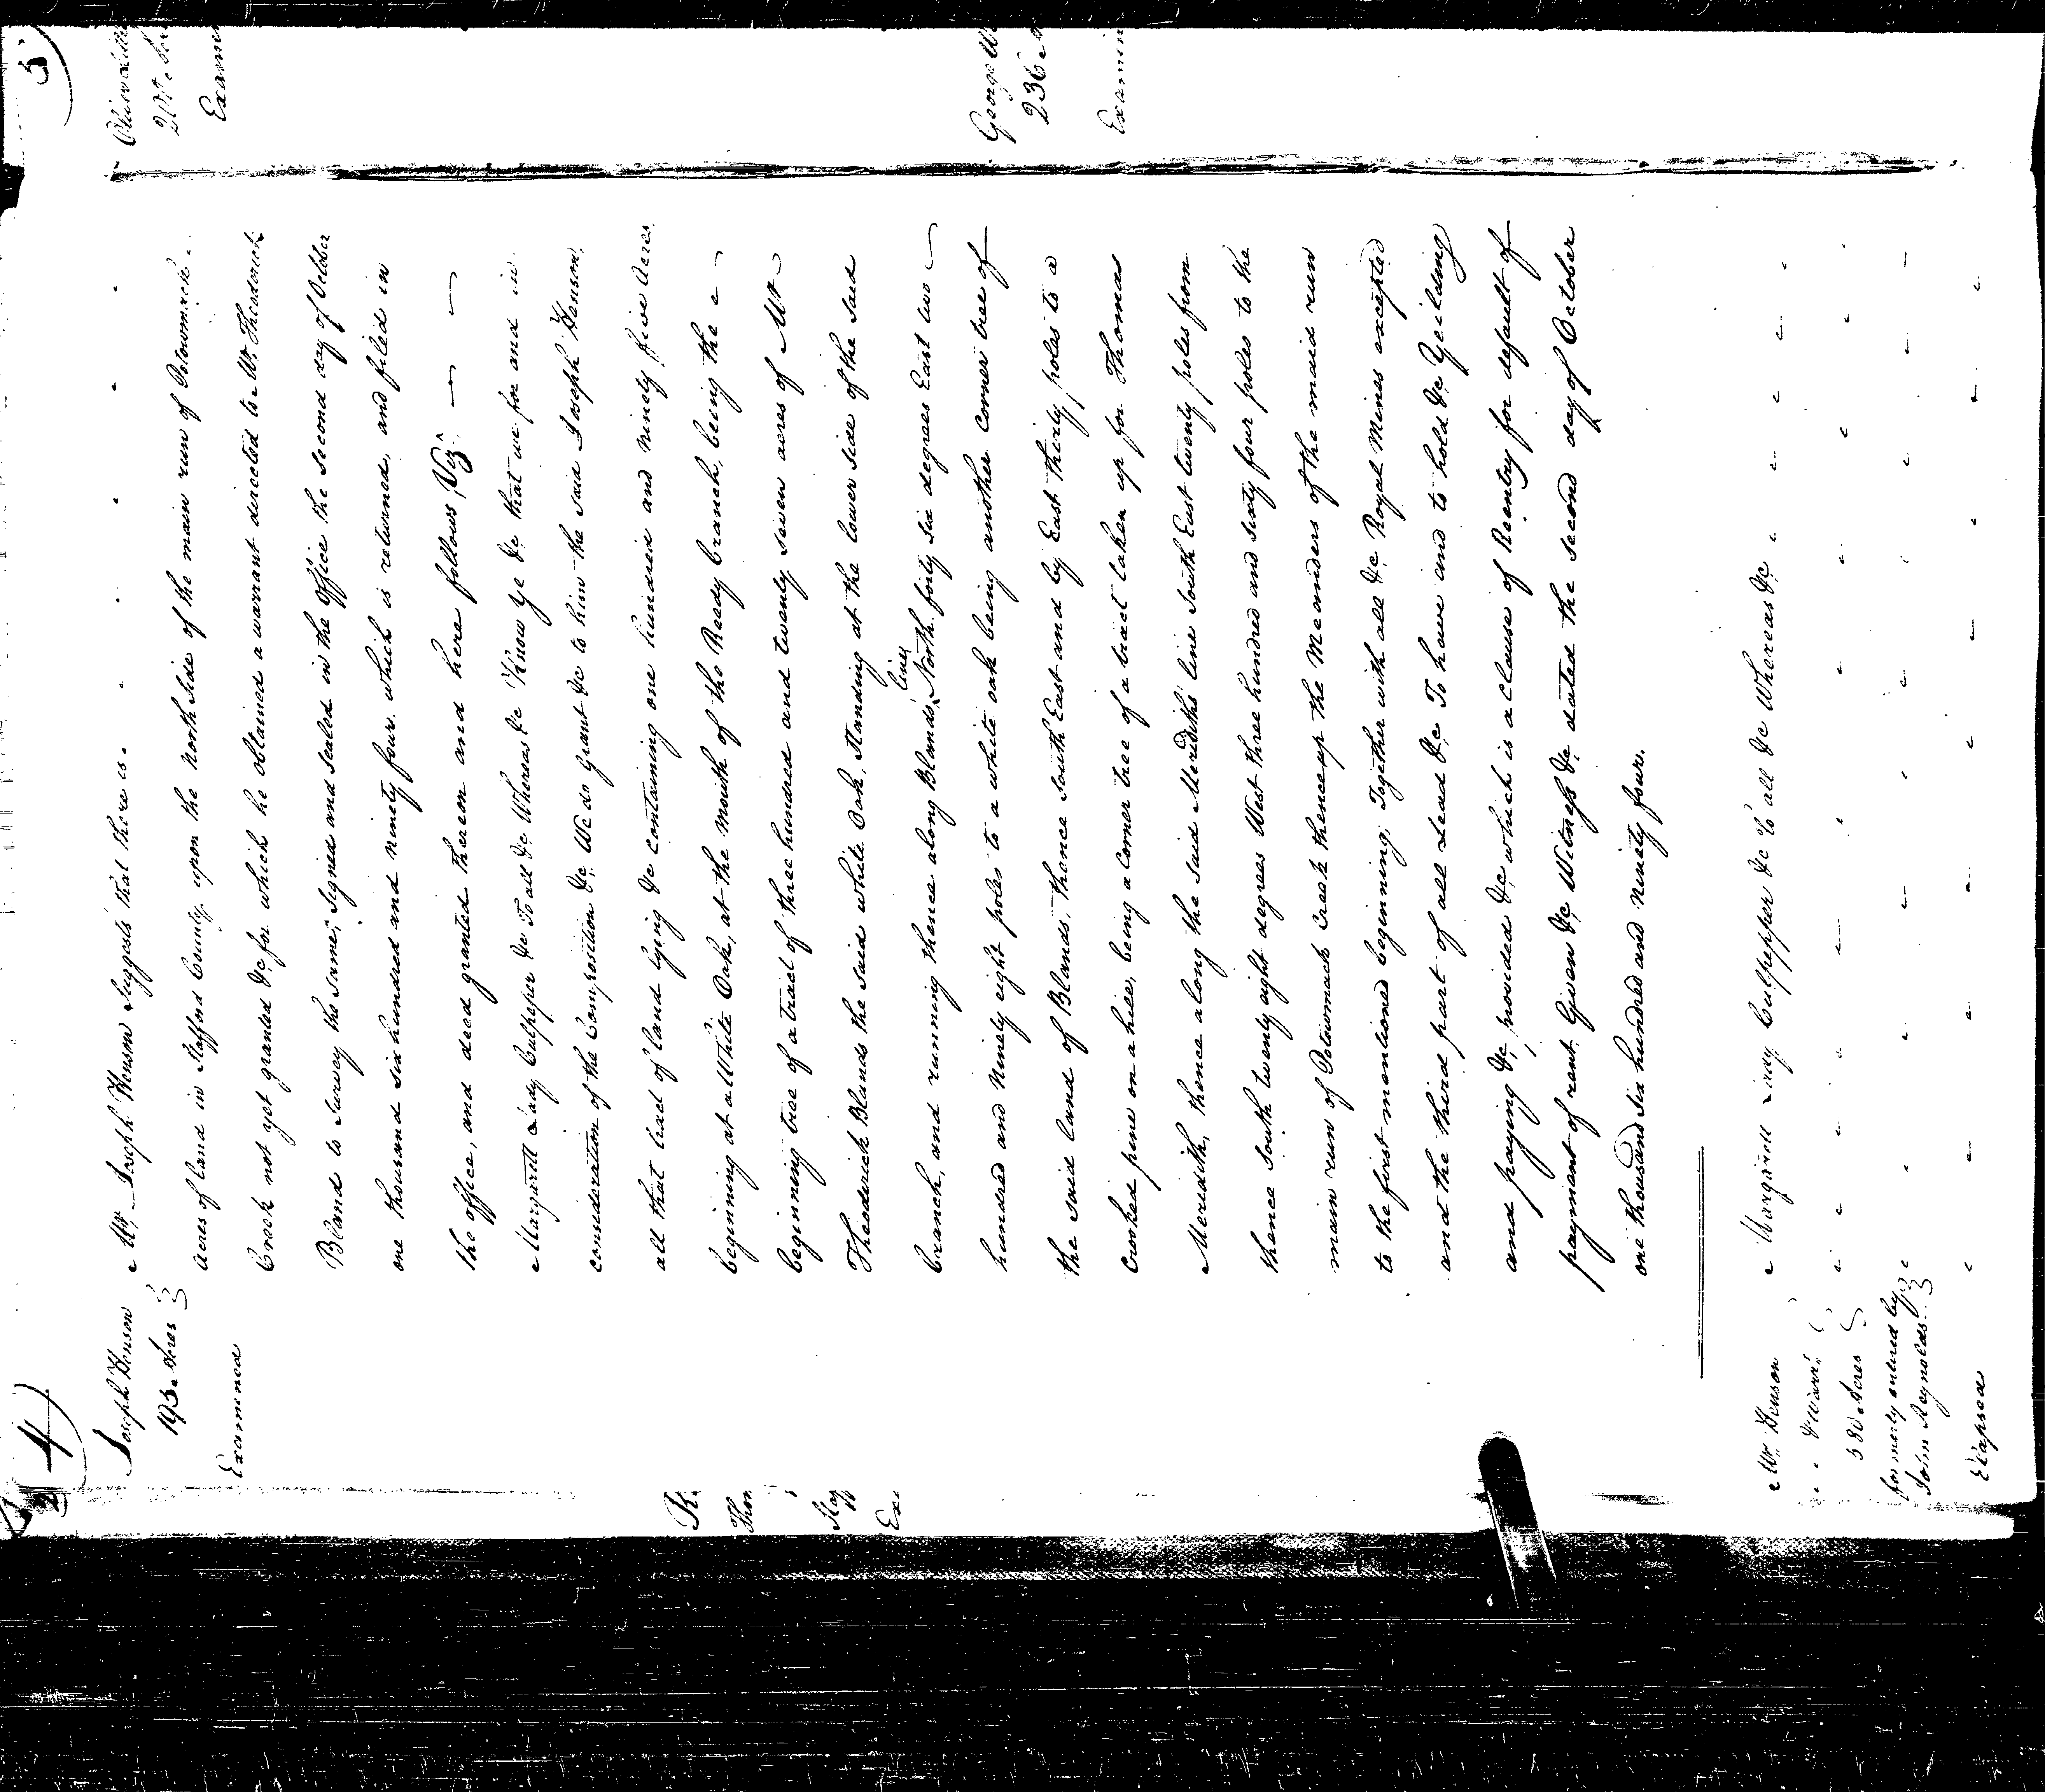 4
Joseph Henson
195 Acres
Examined
Mr. Joseph Henson Suggests that there is
acres of land in Stafford County upon the North Side of the main run of Potowmack
Creek not yet granted &c for which he obtained a warrant directed to Mr. Theodorick
Bland to survey the same; Signed and sealed in the Office the second day of October
one thousand six hundred and ninety four which is returned, and filed in
the office, and deed granted thereon and here follows Vizt
Margarett Lady Culpeper &c To all &c Whereas &c Know ye &c that we for and in
consideration of the Composition &c We do Grant &c to him the said Joseph Henson,
all that tract of land lying &c containing one hundred and ninety five Acres
beginning at a White Oak, at the mouth of the Reedy branch, being the
beginning tree of a tract of three hundred and twenty seven acres of Mr
Theoderick Blands the said white Oak, standing at the lower side of the said
branch, and running thence along Blands line North forty six degrees East two
hundred and Ninety eight poles to a white oak being another corner tree of
the said land of Blands, thence South East and by East thirty poles to a
Crooked pine on a hill, being a corner tree of a tract taken up for Thomas
Meridith, thence along the said Meridiths line South East twenty poles from
thence South twenty eight degrees West three hundred and sixty four poles to the
main run of Potowmack Creek thence up the Meanders of the maid run
to the first mentioned beginning; Together with all &c Royal Mines excepted
and the third part of all Lead &c To have and to hold &c Yeilding
and paying &c, provided &c which is a Clause of Reentry for default of
payment of rent, Given &c Witness &c dated the second day of October
one thousand six hundred and ninety four.
Mr. Henson
580 Acres
formerly entered by
John Reynolds
Elapsed
Margarett Lady Culpepper &c To all &c Whereas &c
5
236
Examin
George W
Examin